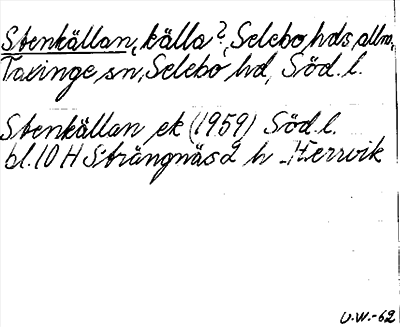 Stenkällan, källa?, Selebo hds allm.
Taxinge sn, Selebo hd, Söd. l.
Stenkällan ek (1959) Söd. l.
bl. 10 H Strängnäs 2 h Herrvik
U.W.-62